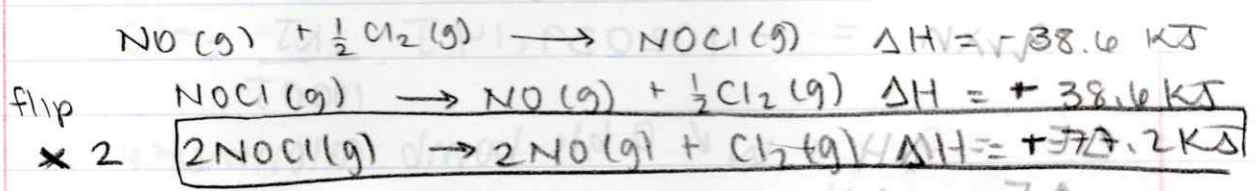 NO(g) + 1/2 Cl2(g) → NOCl(g) ΔH = -38.6 KJ
flip NOCl(g) → NO(g) + 1/2 Cl2(g) ΔH = + 38.6 KJ
× 2 2NOCl(g) → 2NO(g) + Cl2(g) ΔH = +77.2 KJ